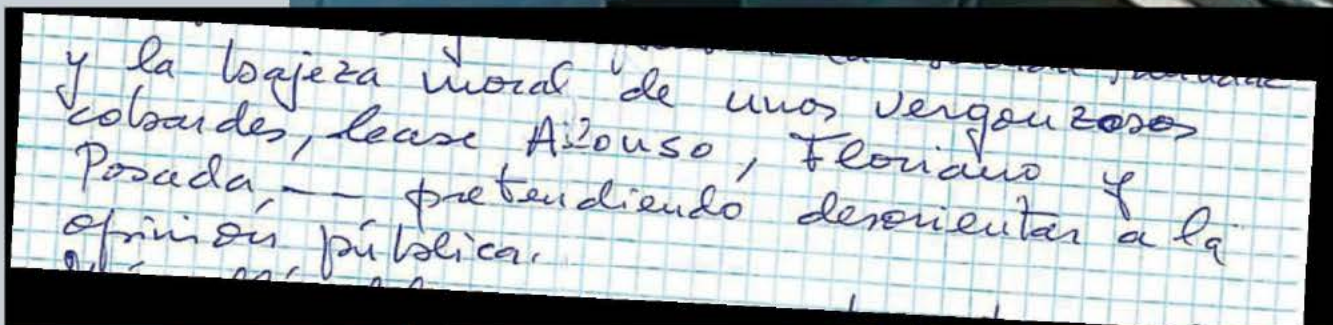 y la bajeza moral de unos vergonzosos
cobardes, lease Alonso, Floriano y
Posada, — pretendiendo desorientar a la
opinión pública.